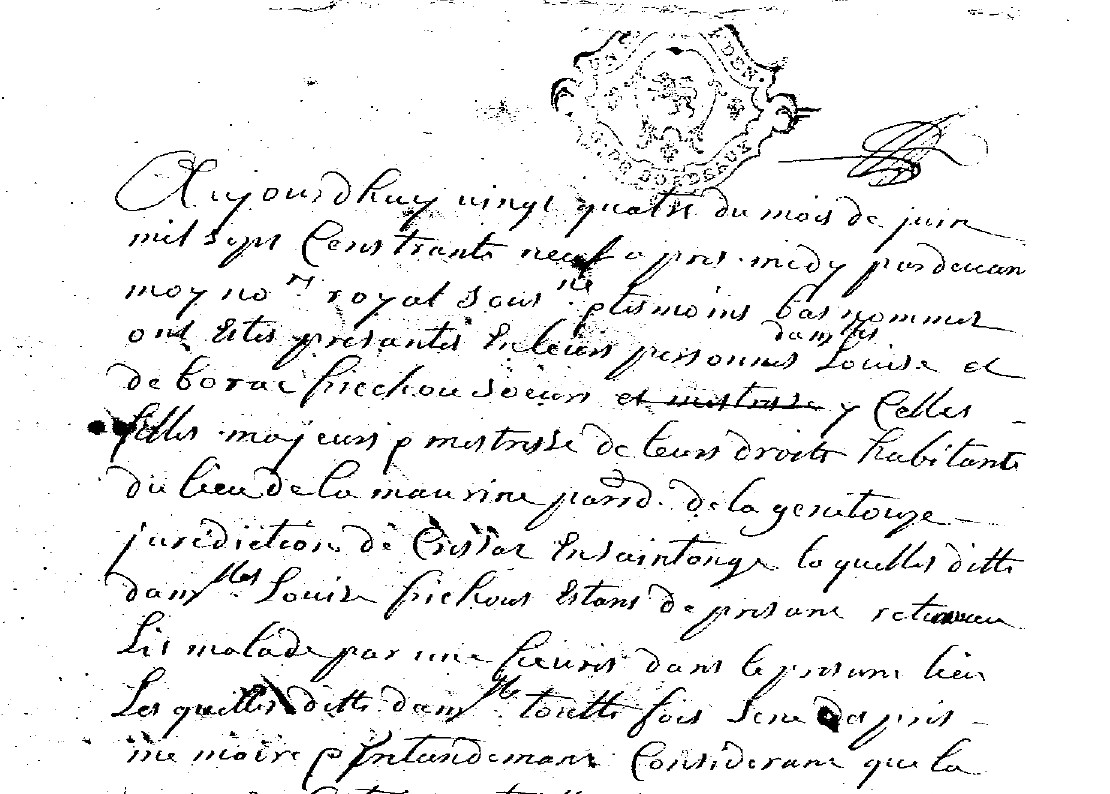 DEN.
G. DE BORDEAUX
Aujourdhuy vingt quatre du mois de juin
mil sept Cens trante neuf apres midy pardevan
moy no.re royal sous.ne p tesmoins bas nommes
ont Estes presantes En leurs personnes damlles Louise et
de borac frichou soeurs et mestresse y Celles
filles majeurs p mestresse de leurs droits habitante
du lieu de la maurine parod. de la genetouze
juridiction de Enssaintonge laquelles ditte
damlles Louise frichous Estans de presant
Lit malade par une fieuvre dans le presant lieu
Lesquelles ditte damlle toutte fois
me moire p Entandemant Considerant que la